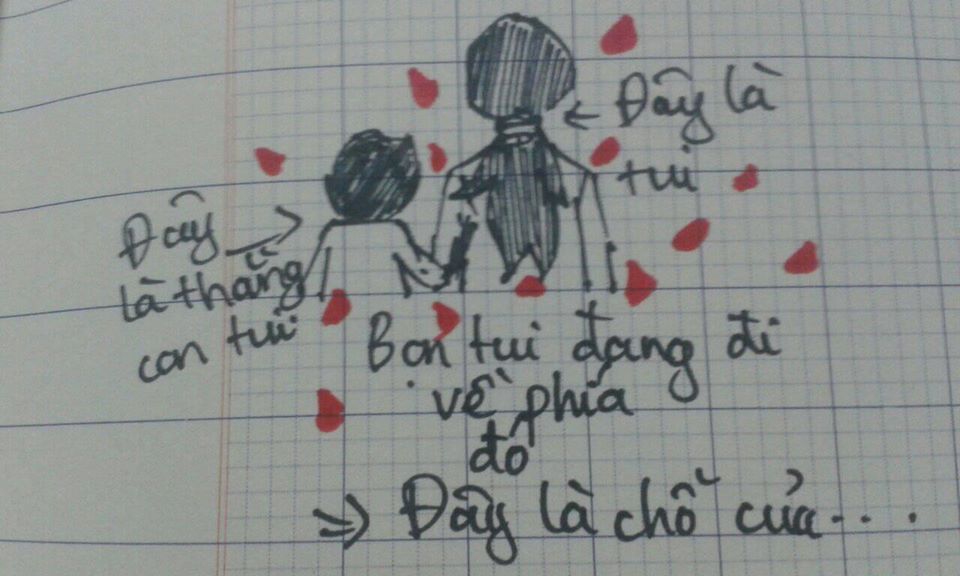 Đây là
tui
Đây
là thằng
con tui
Bọn tui đang đi
về phía
đó
=> Đây là chỗ của....